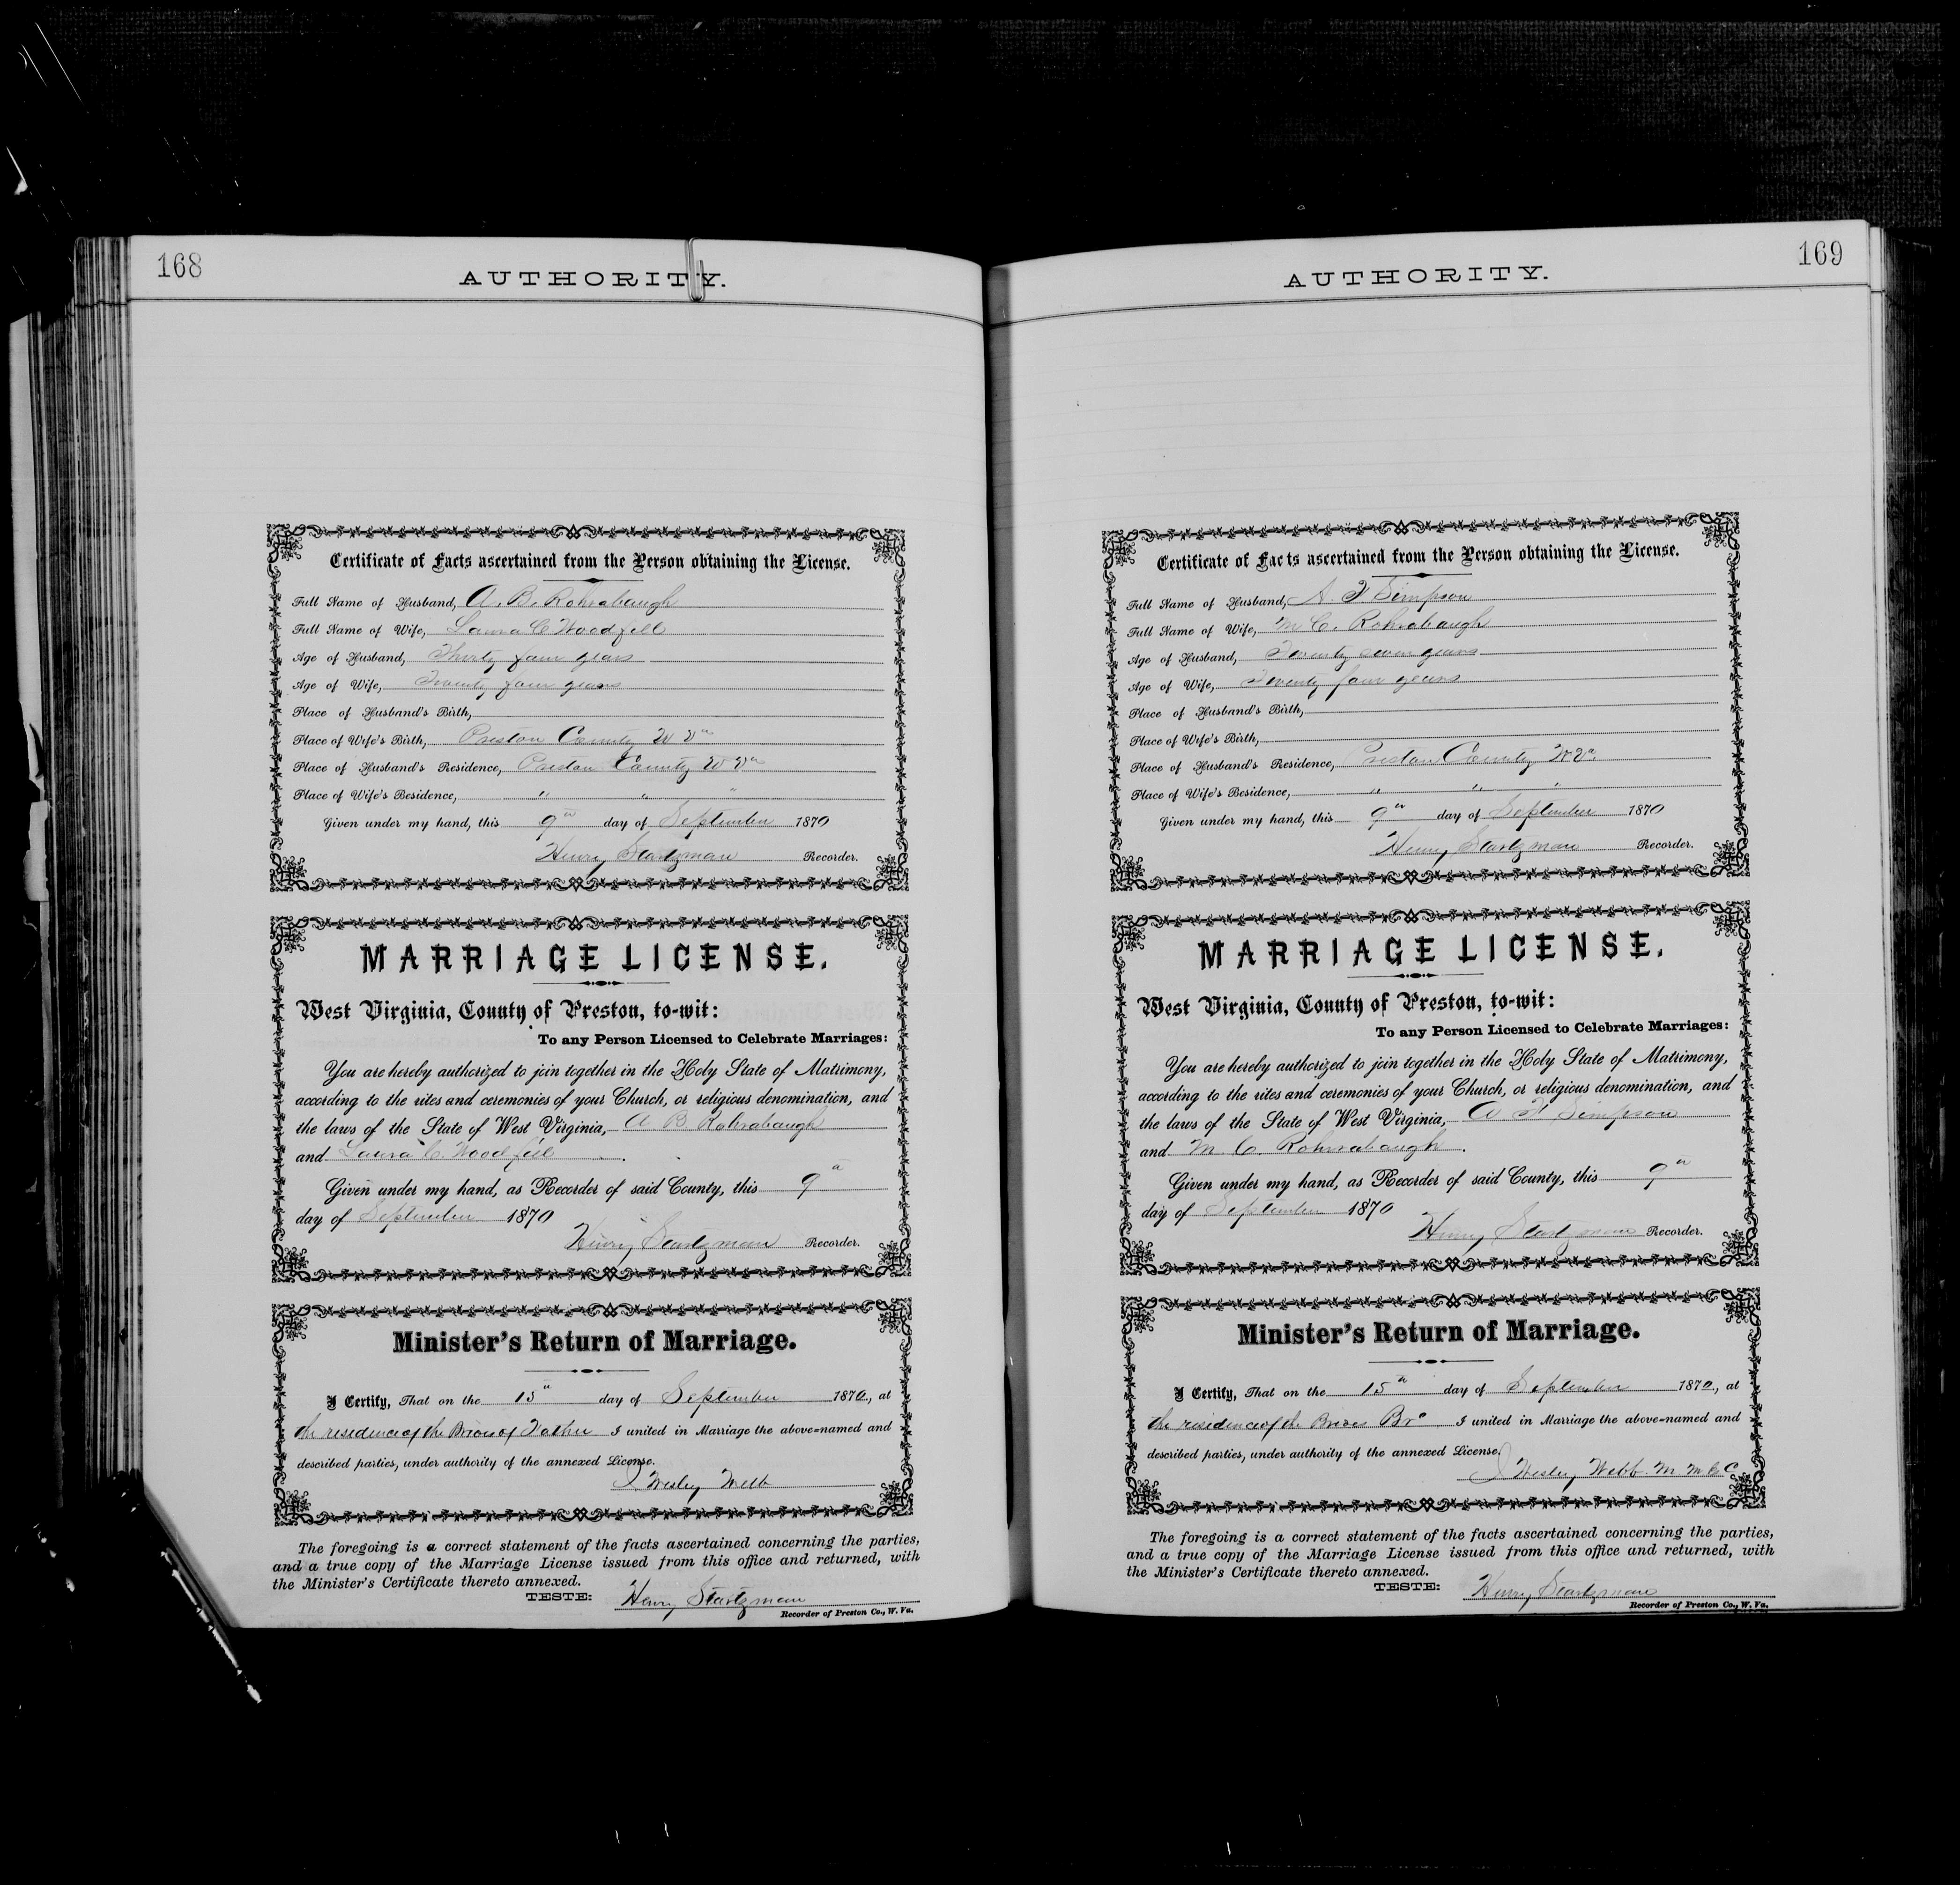 168
AUTHORITY.
Certificate of Facts ascertained from the Person obtaining the License.
Full Name of Husband, A. B. Rohrabaugh
Full Name of Wife, Laura C Woodfill
Age of Husband, Thirty four years
Age of Wife, Twenty four years
Place of Husband's Birth,
Place of Wife's Birth, Preston County W Va
Place of Husband's Residence, Preston County W Va
Place of Wife's Residence, " " "
Given under my hand, this 9th day of September 1870
Henry Startzman Recorder.
MARRIAGE LICENSE.
West Virginia, County of Preston, to-wit:
To any Person Licensed to Celebrate Marriages:
You are hereby authorized to join together in the Holy State of Matrimony,
according to the rites and ceremonies of your Church, or religious denomination, and
the laws of the State of West Virginia, A. B. Rohrabaugh
and Laura C. Woodfill
Given under my hand, as Recorder of said County, this 9th
day of September 1870
Henry Startzman Recorder.
Minister's Return of Marriage.
I Certify, That on the 15th day of September 1870, at
the residence of the Brides Father I united in Marriage the above-named and
described parties, under authority of the annexed License.
J Wesley Webb
The foregoing is a correct statement of the facts ascertained concerning the parties,
and a true copy of the Marriage License issued from this office and returned, with
the Minister's Certificate thereto annexed.
TESTE: Henry Startzman
Recorder of Preston Co., W. Va.
169
AUTHORITY.
Certificate of Facts ascertained from the Person obtaining the License.
Full Name of Husband, A. F Simpson
Full Name of Wife, M C. Rohrabaugh
Age of Husband, Twenty seven years
Age of Wife, Twenty four years
Place of Husband's Birth,
Place of Wife's Birth,
Place of Husband's Residence, Preston County W Va
Place of Wife's Residence, " " "
Given under my hand, this 9th day of September 1870
Henry Startzman Recorder.
MARRIAGE LICENSE.
West Virginia, County of Preston, to-wit:
To any Person Licensed to Celebrate Marriages:
You are hereby authorized to join together in the Holy State of Matrimony,
according to the rites and ceremonies of your Church, or religious denomination, and
the laws of the State of West Virginia, A F Simpson
and M. C. Rohrabaugh.
Given under my hand, as Recorder of said County, this 9th
day of September 1870
Henry Startzman Recorder.
Minister's Return of Marriage.
I Certify, That on the 15th day of September 1870, at
the residence of the Brides Bro I united in Marriage the above-named and
described parties, under authority of the annexed License.
J Wesley Webb. M. M. E. C
The foregoing is a correct statement of the facts ascertained concerning the parties,
and a true copy of the Marriage License issued from this office and returned, with
the Minister's Certificate thereto annexed.
TESTE: Henry Startzman
Recorder of Preston Co., W. Va.